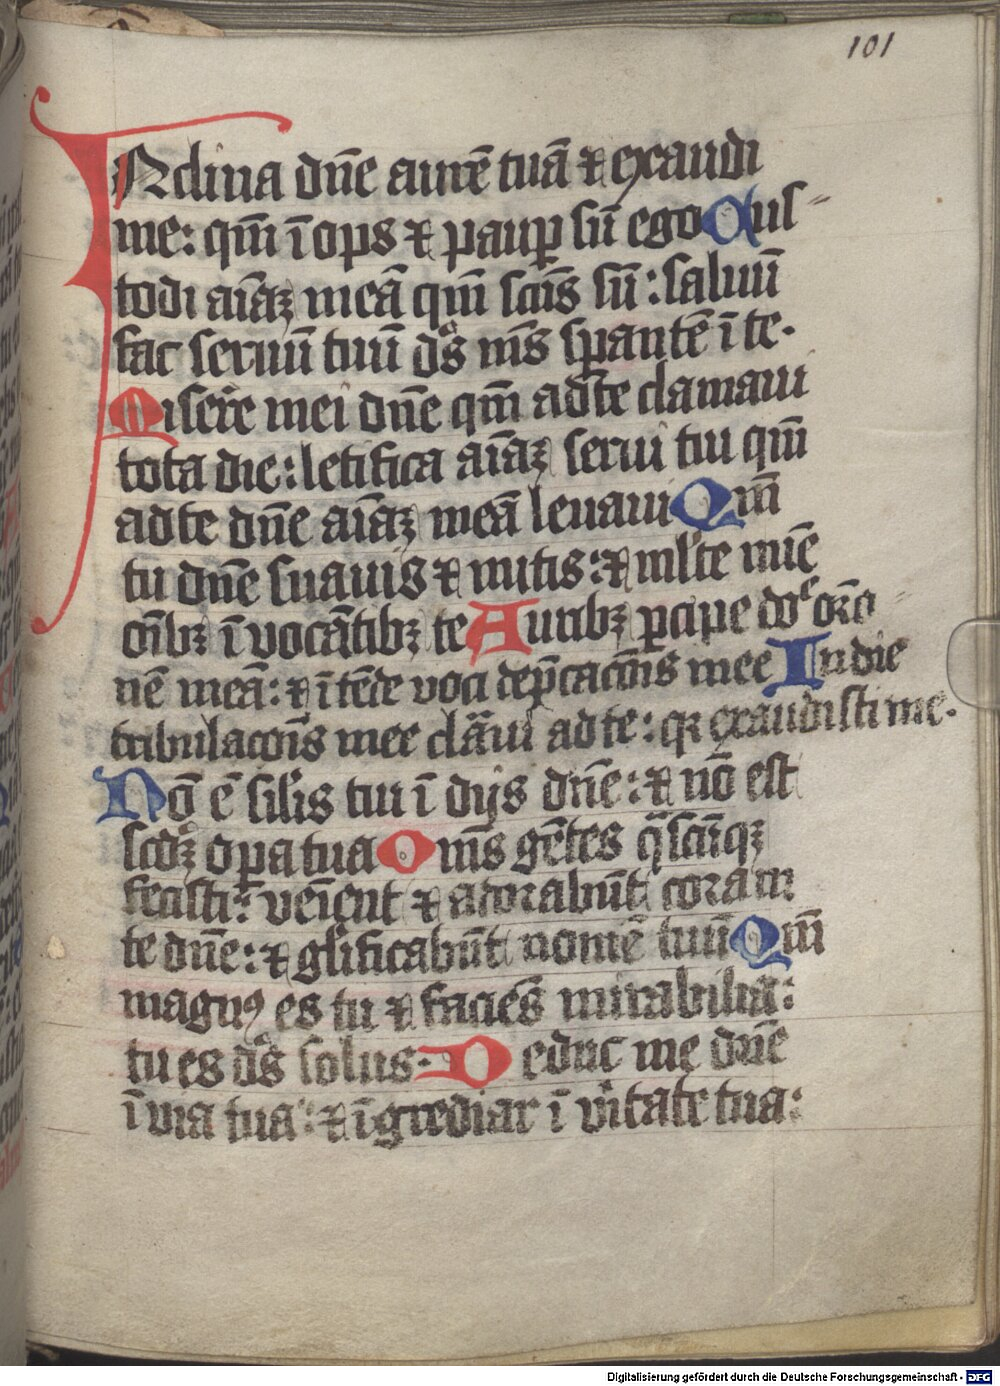 101
INclina dn̄e aurē tuā ⁊ exaudi
me: qm̄ ī ops ⁊ paup̱ su̅ ego Cus-
todi aīaꝫ meā qm̄ sc̄us su̅: saluu̅
fac seruu̅ tuu̅ ds̄ ms̄ sꝑantē ī te.
Miserē mei dn̄e qm̄ ad te clamaui
tota die: letifica aīaꝫ serui tui qm̄
ad te dn̄e aīaꝫ meā leuaui Qm̄
tu dn̄e suauis ⁊ mitis: ⁊ ml̄te mīe
om̄ibꝫ ī vocātibꝫ te Auribꝫ ꝑcipe do᷑ or̄o
nē meā: ⁊ ītēde voci dep̄cacōis mee In die
tribulacōis mee clāui ad te: qꝛ exaudisti me.
Nō ē sil̄is tui ī dijs dn̄e: ⁊ nō est
scd̄ꝫ oꝑa tua Om̄s gētes q̄scūqꝫ
fecisti: veīent ⁊ adorabūt coram
te dn̄e: ⁊ gl̄ificabūt nomē tuu̅ Qm̄
magnꝯ es tu ⁊ faciēs mirabilia:
tu es ds̄ solus. Deduc me dn̄e
ī via tua: ⁊ īgrediar ī v̄itate tua:
Digitalisierung gefördert durch die Deutsche Forschungsgemeinschaft - DFG